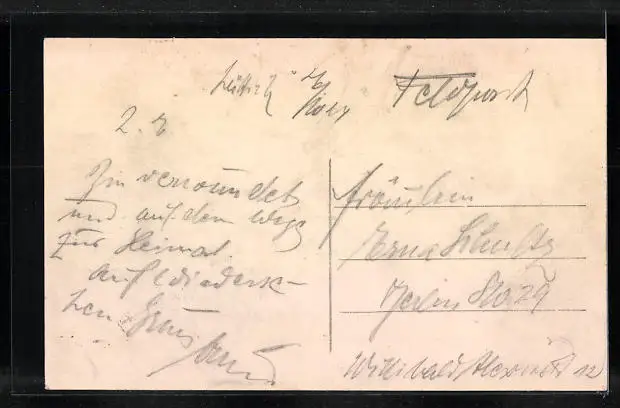 Lüttich 26/10 14
Feldpost
L. E.
Bin verwundet
und auf dem Wege
zur Heimat
auf Wiederse-
hen Gruss
Fräulein
Erna Schultz
Berlin SW 29
Willibald Alexisstr 12